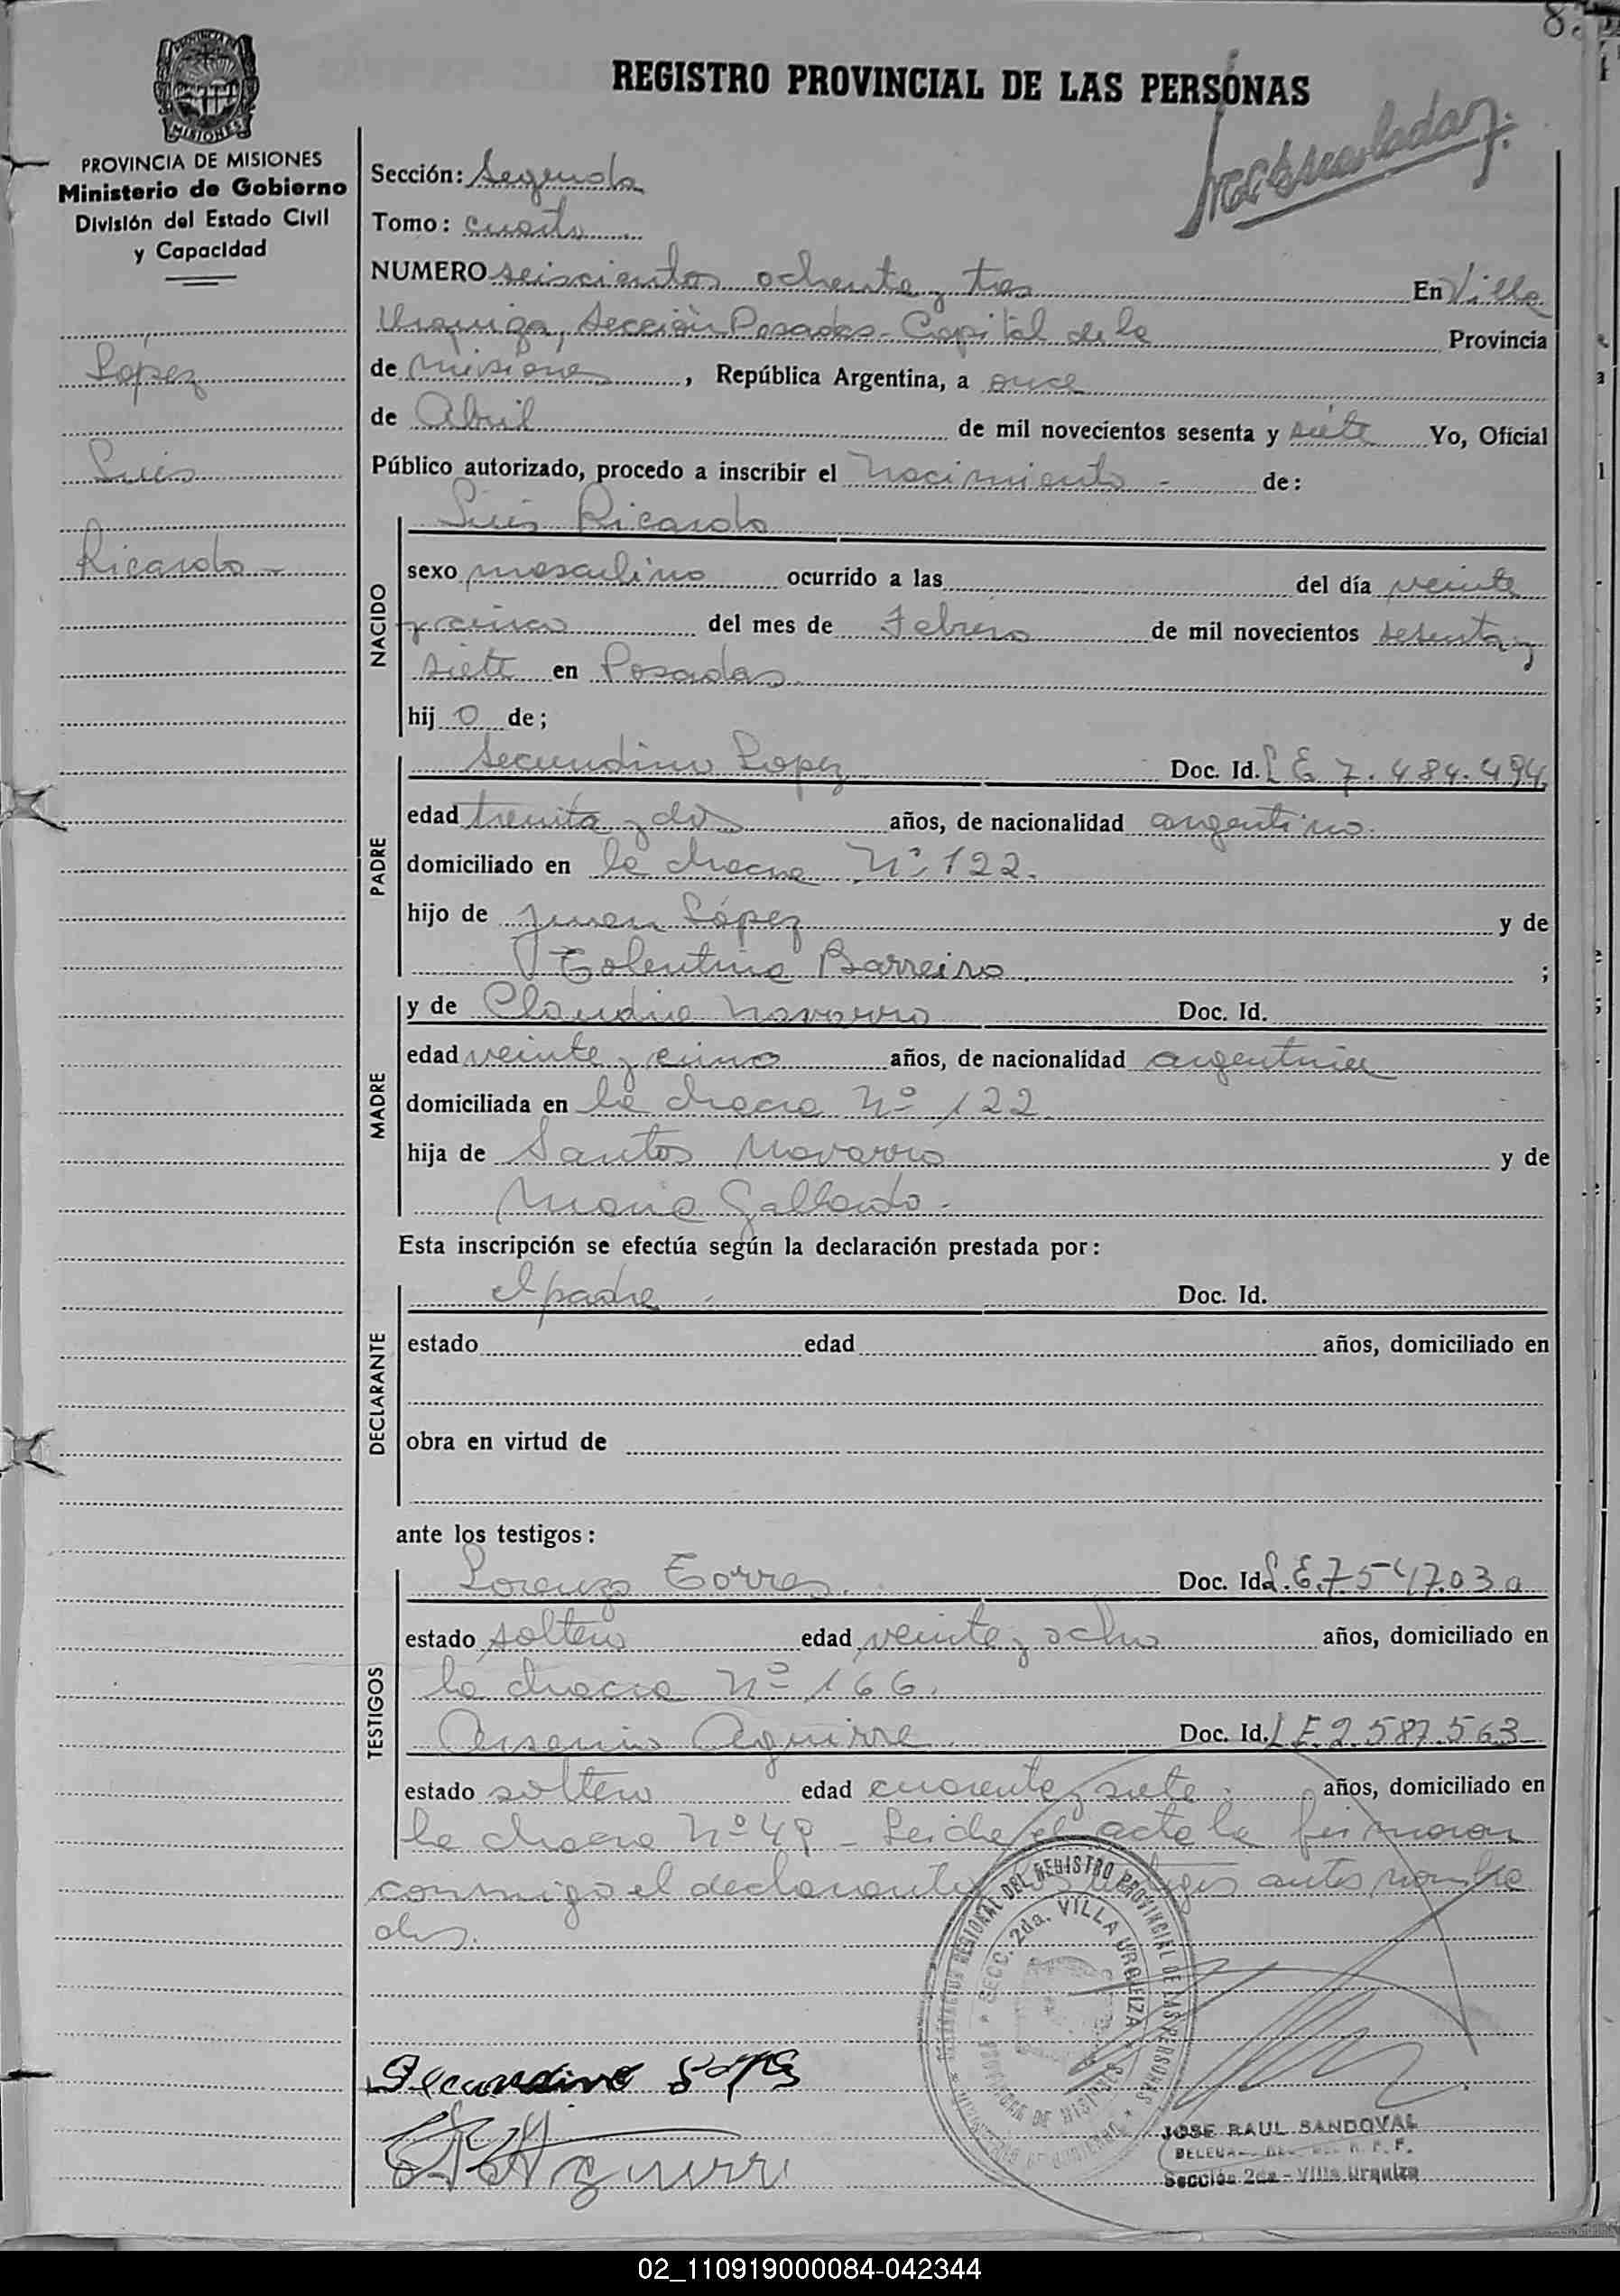 REGISTRO PROVINCIAL DE LAS PERSONAS
MISIONES
PROVINCIA DE MISIONES
Ministerio de Gobierno
División del Estado Civil
y Capacidad
López
Luis
Ricardo -
Sección: Segunda
Tomo: cuarto
NUMERO seiscientos ochenta y tres En Villa
Urquiza, Sección Posadas - Capital de la Provincia
de Misiones, República Argentina, a once
de Abril de mil novecientos sesenta y siete Yo, Oficial
Público autorizado, procedo a inscribir el Nacimiento - de:
NACIDO
Luis Ricardo
sexo masculino ocurrido a las del día veinte
y cinco del mes de Febrero de mil novecientos sesenta y
siete en Posadas
hij o de;
PADRE
Secundino Lopez Doc. Id. L E 7.484.494
edad treinta y dos años, de nacionalidad argentino.
domiciliado en la chacra N° 122.
hijo de Juan López y de
Tolentina Barreiro ;
MADRE
y de Claudia Navarro Doc. Id.
edad veinte y cinco años, de nacionalidad argentina
domiciliada en la chacra N° 122.
hija de Santos Navarro y de
Maria Gallardo.
Esta inscripción se efectúa según la declaración prestada por:
DECLARANTE
el padre Doc. Id.
estado edad años, domiciliado en
obra en virtud de
ante los testigos:
TESTIGOS
Lorenzo Torres Doc. Id. L.E.
estado soltero edad veinte y ocho años, domiciliado en
la chacra N° 166.
Arsenio Aguirre Doc. Id. L E 2.587.563
estado soltero edad cuarenta y siete años, domiciliado en
la chacra N° 49 - Leida el acta la firmaron
conmigo el declarante y testigos antes nombra
dos.
SECC. 2da. VILLA URQUIZA
PROVINCIA DE MISIONES
Secundino Lopez
Aguirre
JOSE RAUL SANDOVAL
Sección 2da - Villa Urquiza
02_110919000084-042344